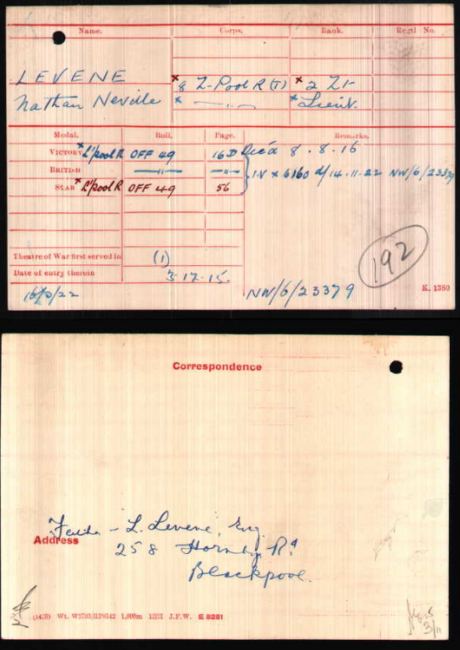 Name. Corps. Rank. Regtl. No.
LEVENE × 8 L-Pool R (T) × 2 Lt
Nathan Neville × — " — × Lieut.
Medal. Roll. Page. Remarks.
VICTORY × L'pool R OFF 49 16D Dec'd 8.8.16
BRITISH — " — — " — I.V × 6160 d/14.11.22 NW/6/23379
STAR × L'pool R OFF 49 56
192
Theatre of War first served in (1)
Date of entry therein 3.12.15.
K. 1380
NW/6/23379
Correspondence
Father - L. Levene, Esq.
Address
258 Hornby Rd
Blackpool.
1,000m J.P.W. E 8281
3/11